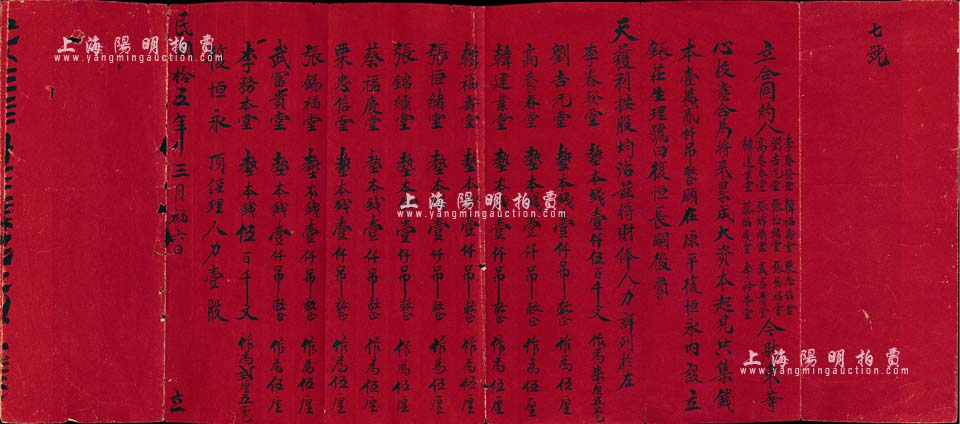 七號
立合同約人
李春發堂 韓福壽堂 栗忠信堂
劉吉元堂 張恒緒堂 張錫福堂
高養春堂 張錦繡堂 武富貴堂
韓建業堂 蔡福慶堂 李務本堂
今財東等
心投意合為將來累成大資本起見共集錢
本壹萬貳仟吊整願在原平復恒永內設立
銀莊生理號曰復恒長嗣後蒙
天護利按股均沾茲將財俸人力詳列於左
李春發堂 墊本錢壹仟伍百千文 作為柒厘五毫
劉吉元堂 墊本錢壹仟吊整 作為伍厘
高養春堂 墊本錢壹仟吊整 作為伍厘
韓建業堂 墊本錢壹仟吊整 作為伍厘
韓福壽堂 墊本錢壹仟吊整 作為伍厘
張恒緒堂 墊本錢壹仟吊整 作為伍厘
張錦繡堂 墊本錢壹仟吊整 作為伍厘
蔡福慶堂 墊本錢壹仟吊整 作為伍厘
栗忠信堂 墊本錢壹仟吊整 作為伍厘
張錫福堂 墊本錢壹仟吊整 作為伍厘
武富貴堂 墊本錢壹仟吊整 作為伍厘
李務本堂 墊本錢伍百千文 作為貳厘五毫
復恒永 頂經理人力壹股
民國拾五年三月初六日 立
上海陽明拍賣
www.yangmingauction.com
上海陽明拍賣
www.yangmingauction.com
上海陽明拍賣
www.yangmingauction.com